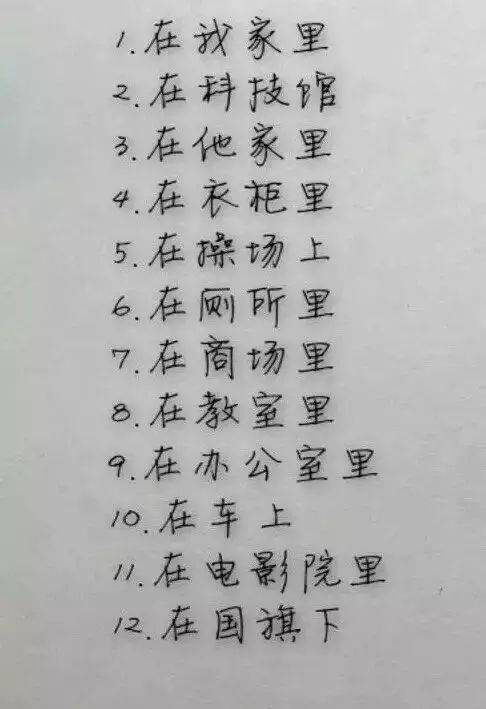 1. 在我家里
2. 在科技馆
3. 在他家里
4. 在衣柜里
5. 在操场上
6. 在厕所里
7. 在商场里
8. 在教室里
9. 在办公室里
10. 在车上
11. 在电影院里
12. 在国旗下